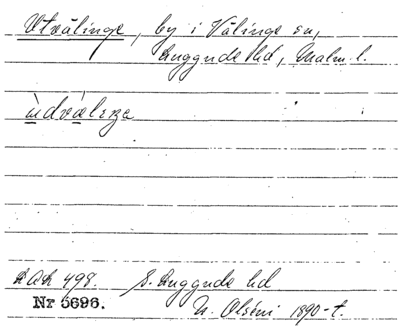 Utvälinge, by i Välinge sn,
Luggude hd, Malm. l.
S. Luggude hd
Nr 5696.
N. Olséni 1890-t.